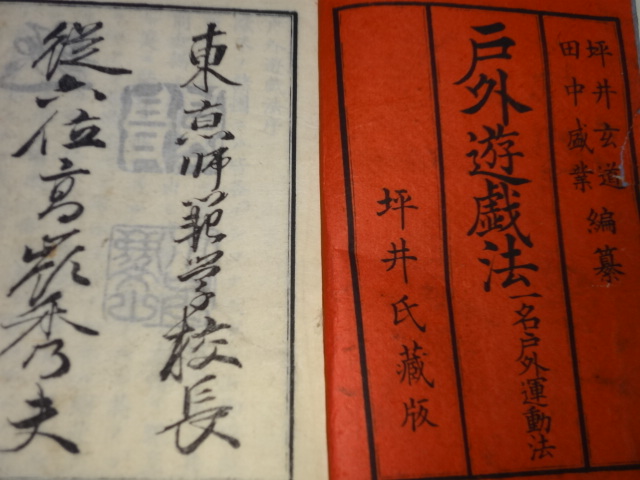 坪井玄道
田中盛業
編纂
戶外遊戯法
一名戶外運動法
坪井氏藏版
東京師範学校長
従六位高嶺秀夫